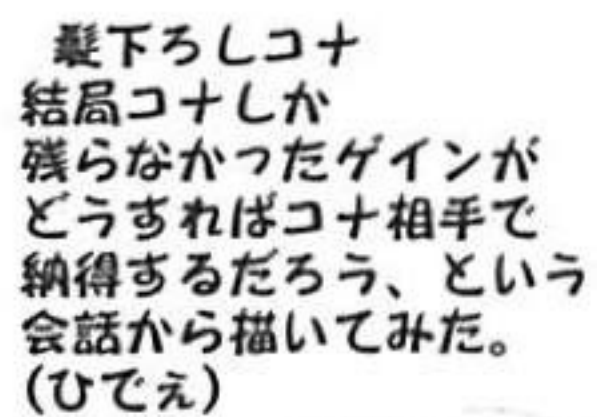 髪下ろしコナ
結局コナしか
残らなかったゲインが
どうすればコナ相手で
納得するだろう、という
会話から描いてみた。
(ひでぇ)